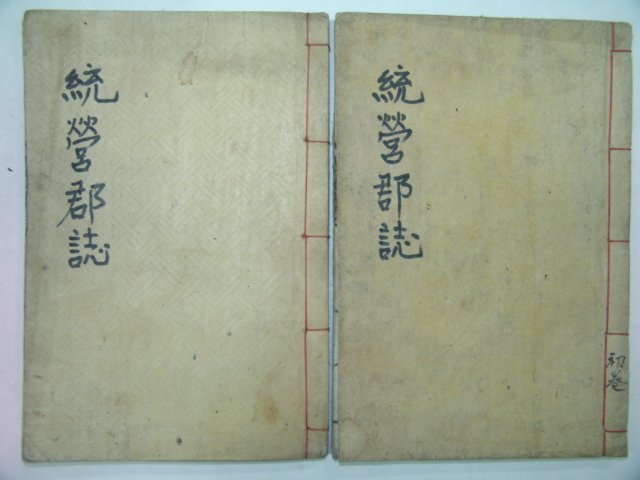 統營郡誌
統營郡誌
初卷